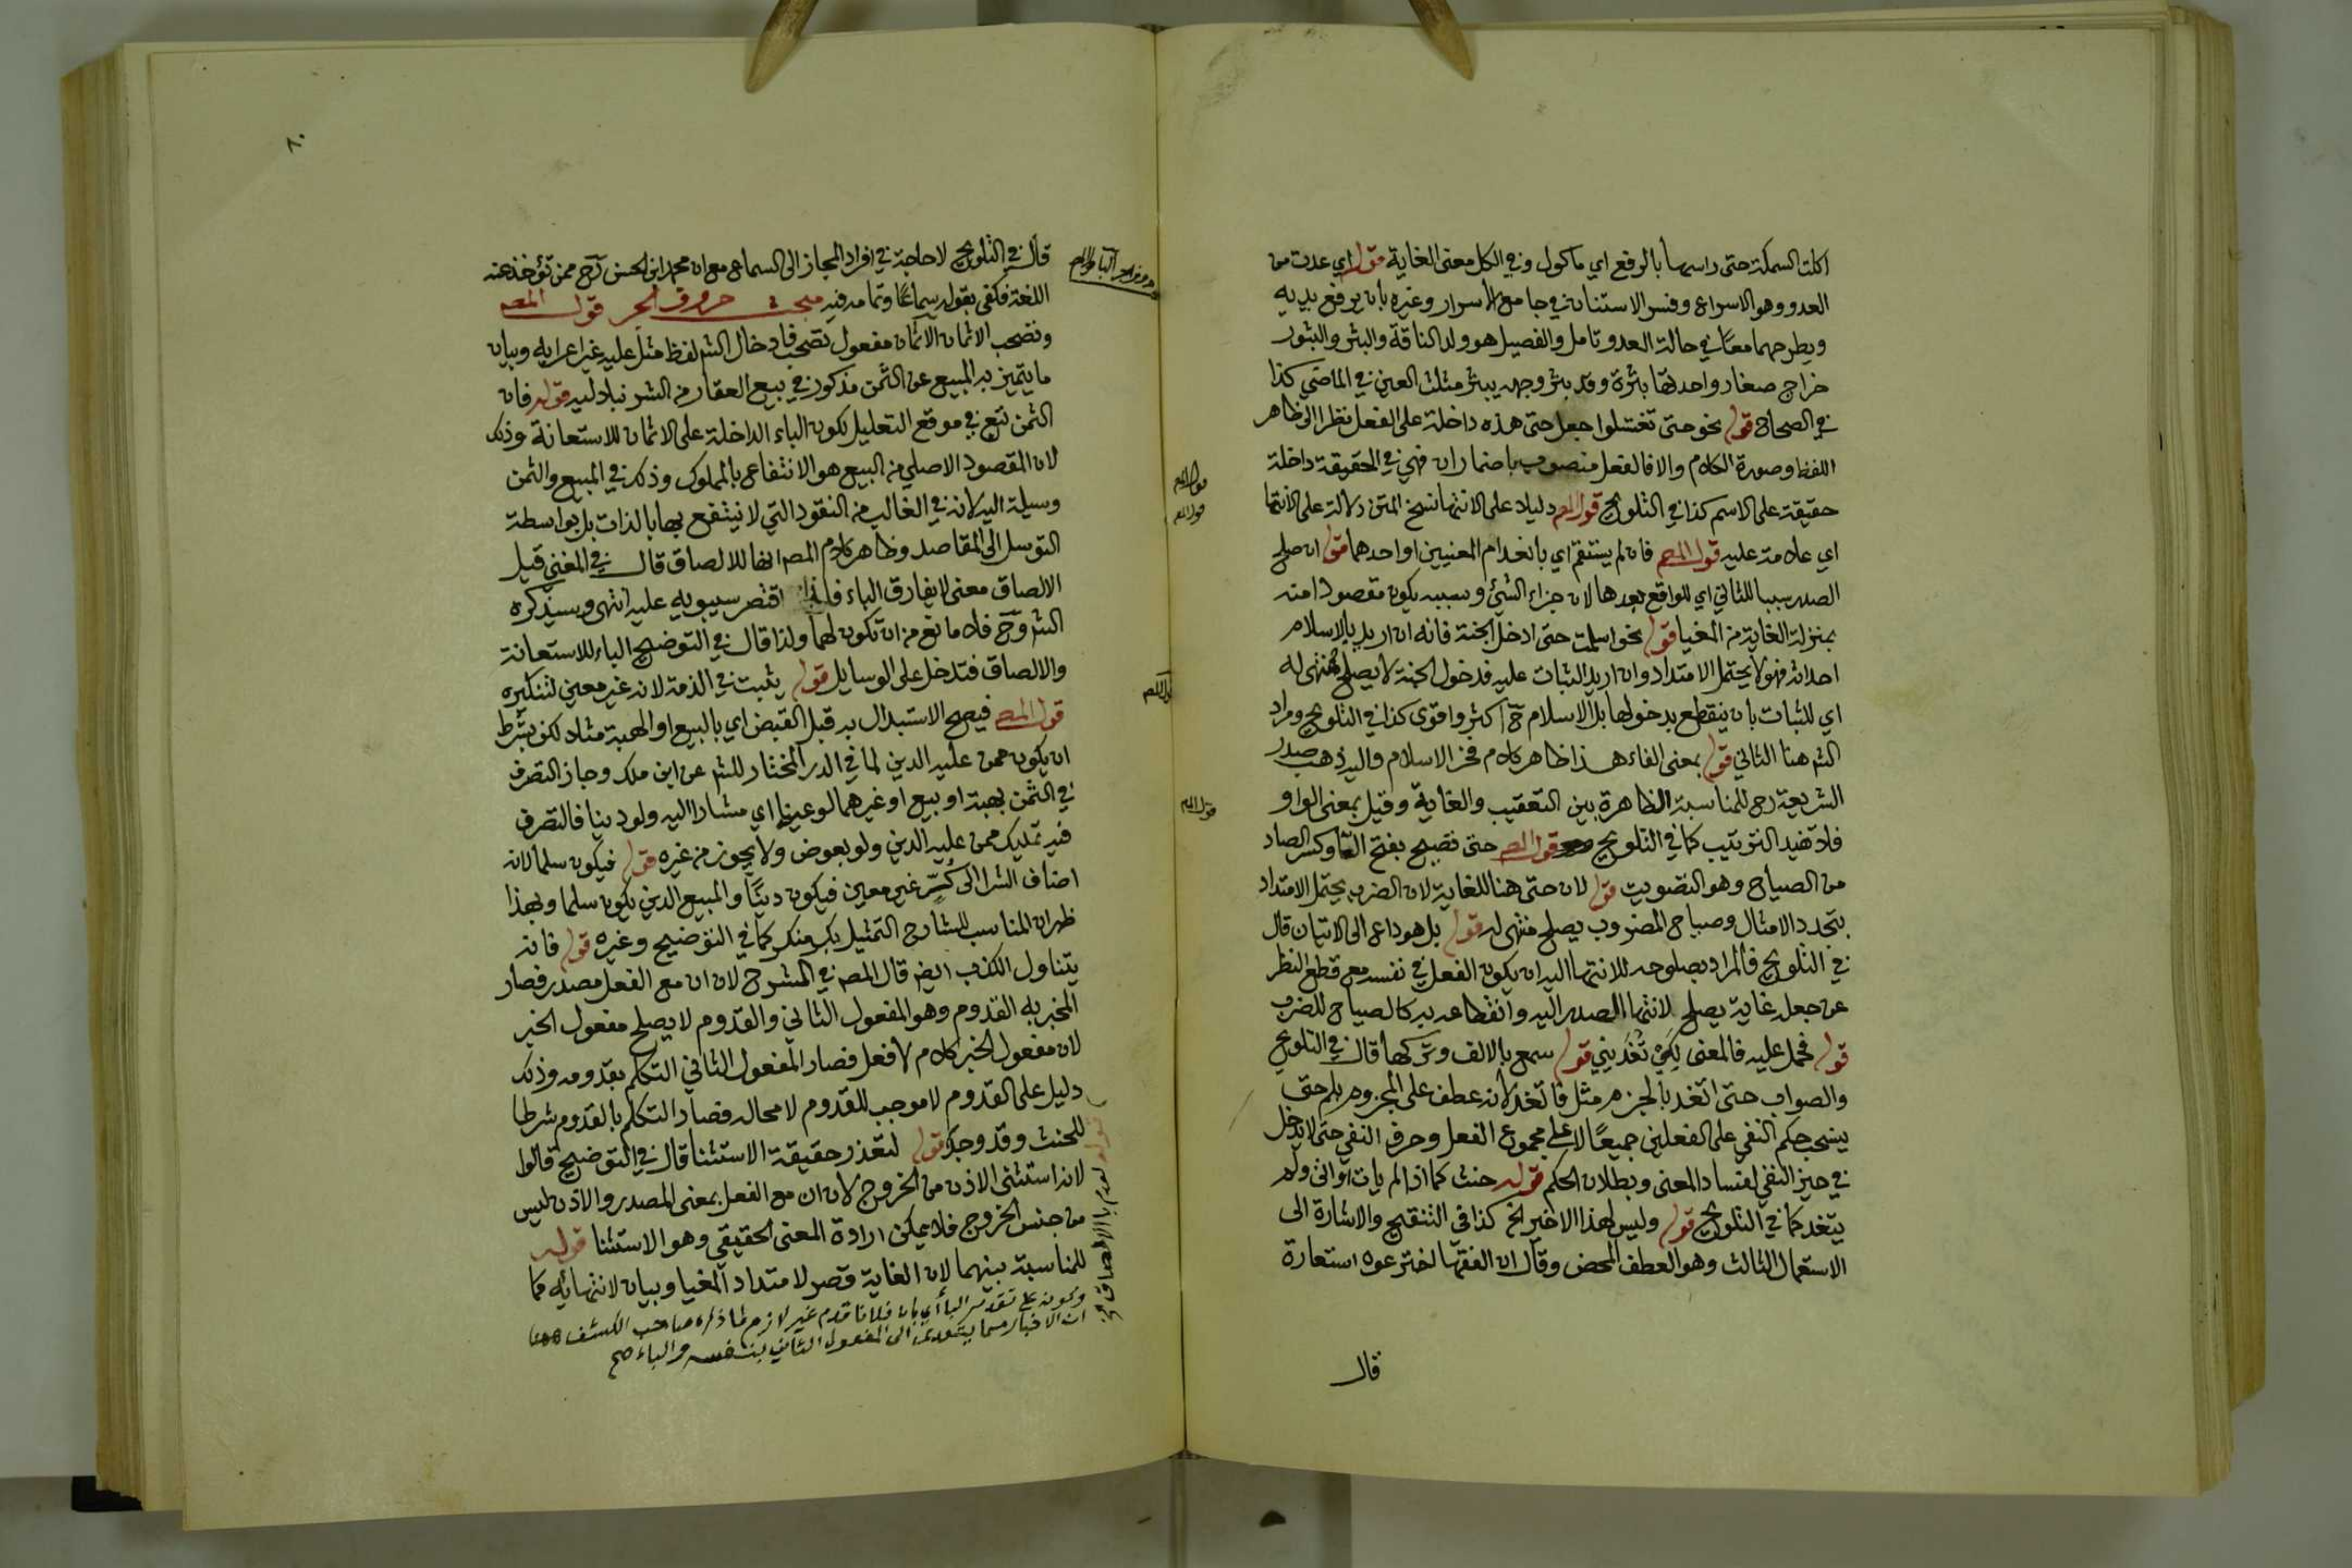 اكلت السمكة حتى راسها بالرفع اي ماكول وفي الكل معنى الغاية قوله اي عدت من
العدو وهو الاسراع وفسر الاستنان في جامع الاسرار وغيره بان يرفع يديه
ويطرحهما معًا في حالة العدو تامل والفصيل هو ولد الناقة والبثر والبثور
خراج صغار واحدتها بثرة وقد بثر وجهه يبثر مثلث العين في الماضي كذا
في الصحاح قوله نحو حتى تغتسلوا جعل حتى هذه داخلة على الفعل نظرا الى ظاهر
اللفظ وصورة الكلام والا فالفعل منصوب باضمار ان فهي في الحقيقة داخلة
حقيقة على الاسم كذا في التلويح قول المص دليلا على الانتها نسخ المتن دلالة على الانتها
اي علامة عليه قول المص فان لم يستقم اي بانعدام المعنيين او احدهما قوله ان صلح
الصدر سببا للثاني اي للواقع بعدها لان جزاء الشئ ومسببه يكون مقصودا منه
بمنزلة الغاية من المغيا قوله نحو اسلمت حتى ادخل الجنة فانه ان اريد بالاسلام
احداثه فهو لا يحتمل الامتداد وان اريد الثبات عليه فدخول الجنة لا يصلح منتهى له
اي للثبات بان ينقطع بدخولها بل الاسلام ح اكثر واقوى كذا في التلويح ومراد
الشر هنا الثاني قوله بمعنى الفاء هذا ظاهر كلام فخر الاسلام واليه ذهب صدر
الشريعة رح للمناسبة الظاهرة بين التعقيب والغاية وقيل بمعنى الواو
فلا تفيد الترتيب كما في التلويح قول المص حتى تصيح بفتح التا وكسر الصاد
من الصياح وهو التصويت قوله لان حتى هنا للغاية لان الضرب يحتمل الامتداد
بتجدد الامثال وصياح المضروب يصلح منتهى له قوله بل هو داع الى الاتيان قال
في التلويح فالمراد بصلوحه للانتها اليه ان يكون الفعل في نفسه مع قطع النظر
عن جعله غاية يصلح لانتها الصدر اليه وانقطاعه به كالصياح للضرب
قوله فحمل عليه فالمعنى لِكَيْ تُغَدِّيَنِي قوله سمع بالالف وتركها قال في التلويح
والصواب حتى اتغد بالجزم مثل فاتغد لانه عطف على المجزوم بلم حتى
ينسحب حكم النفي على الفعلين جميعًا لا على مجموع الفعل وحرف النفي حتى لا يدخل
في حيز النفي لفساد المعنى وبطلان الحكم قوله حنث كما اذا لم يات او اتى ولم
يتغد كما في التلويح قوله وليس لهذا الاخير الخ كذا في التنقيح والاشارة الى
الاستعمال الثالث وهو العطف المحض وقال ان الفقها اخترعوه استعارة
قال
قول المص
قول المص
قول المص
٨٠
قال في التلويح لا حاجة في افراد المجاز الى السماع مع ان محمد ابن الحسن رح ممن تؤخذ عنه
اللغة فكفى بقوله سماعًا وتمامه فيه مبحث حروف الجر قول المص
وتصحب الاثمان الاثمان مفعول تصحب فادخال الشر لفظ مثل عليه غير اعرابه وبيان
ما يتميز به المبيع عن الثمن مذكور في بيع العقار من الشرنبلاليه قوله فان
الثمن تبع في موقع التعليل لكون الباء الداخلة على الاثمان للاستعانة وذلك
لان المقصود الاصلي من البيع هو الانتفاع بالمملوك وذلك في المبيع والثمن
وسيلة اليه لانه في الغالب من النقود التي لا ينتفع بها بالذات بل بواسطة
التوسل الى المقاصد وظاهر كلام المص انها للالصاق قال في المغني قيل
الالصاق معنى لا يفارق الباء فلهذا اقتصر سيبويه عليه انتهى وسيذكره
الشر وح فلا مانع من ان تكون لهما ولذا قال في التوضيح الباء للاستعانة
والالصاق فتدخل على الوسايل قوله يثبت في الذمة لانه غير معين لتنكيره
قول المص فيصح الاستبدال به قبل القبض اي بالبيع او الهبة مثلا لكن بشرط
ان يكون ممن عليه الدين لما في الدر المختار للشر عن ابن ملك وجاز التصرف
في الثمن بهبة او بيع او غيرهما لو عينا اي مشارا اليه ولو دينا فالتصرف
فيه تمليك ممن عليه الدين ولو بعوض ولا يجوز من غيره قوله فيكون سلما لانه
اضاف الشرا الى كُرٍّ غير معين فيكون دينًا والمبيع الدين يكون سلما وبهذا
ظهر ان المناسب للشارح التمثيل بكر منكر كما في التوضيح وغيره قوله فانه
يتناول الكذب ايضر قال المص في الشرح لان ان مع الفعل مصدر فصار
المخبر به القدوم وهو المفعول الثاني والقدوم لا يصلح مفعول الخبر
لان مفعول الخبر كلام لا فعل فصار المفعول الثاني التكلم بقدومه وذلك
دليل على القدوم لا موجب للقدوم لا محاله فصار التكلم بالقدوم شرطا
للحنث وقد وجد قوله لتعذر حقيقة الاستثنا قال في التوضيح قالوا
لانه استثنى الاذن من الخروج لان ان مع الفعل بمعنى المصدر والاذن ليس
من جنس الخروج فلا يمكن ارادة المعنى الحقيقي وهو الاستثنا قوله
للمناسبة بينهما لان الغاية قصر لامتداد المغيا وبيان لانتهائه كما
قوله لعدم با الالصاق
وكونه على تقدير البا أي بان فلانا قدم غير لازم لما ذكره صاحب الكشف
ان الاخبار مما يتعدى الى المفعول الثاني بنفسه وبالباء صح